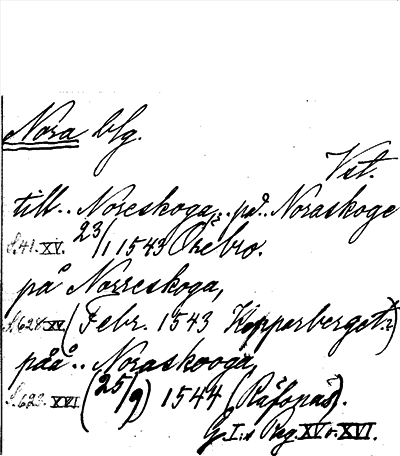 Nora blg.
Vst.
till.. Noreskoga,.. på.. Noraskoge
S.41. XV. 23/1 1543 Örebro.
på Norreskoga,
S.628. XV. (Febr. 1543 Kopparberget?)
påå.. Noraskooga,
S.623. XVI (25/9) 1544 (Räfsnäs).
G. I:s Reg. XV o. XVI.